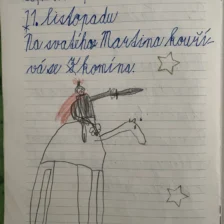 11. listopadu
Na svatého Martina kouří-
vá se z komína.